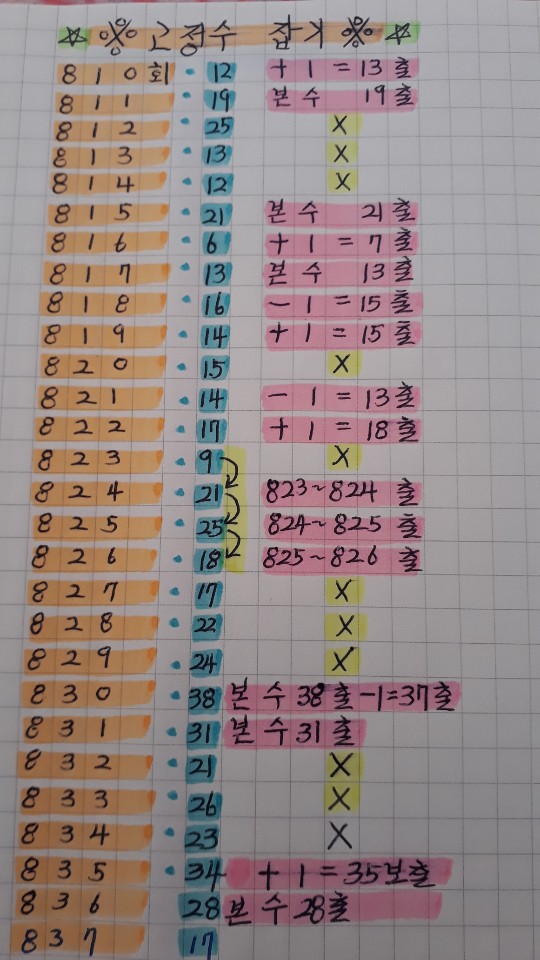 ☆ ※ 고정수 잡기 ※ ☆
810회 · 12 +1=13출
811 · 19 본수 19출
812 · 25 X
813 · 13 X
814 · 12 X
815 · 21 본수 21출
816 · 6 +1=7출
817 · 13 본수 13출
818 · 16 -1=15출
819 · 14 +1=15출
820 · 15 X
821 · 14 -1=13출
822 · 17 +1=18출
823 · 9 X
824 · 21 823~824 출
825 · 25 824~825 출
826 · 18 825~826 출
827 · 17 X
828 · 22 X
829 · 24 X
830 · 38 본수 38출-1=37출
831 · 31 본수 31출
832 · 21 X
833 · 26 X
834 · 23 X
835 · 34 +1=35보출
836 28 본수 28출
837 17